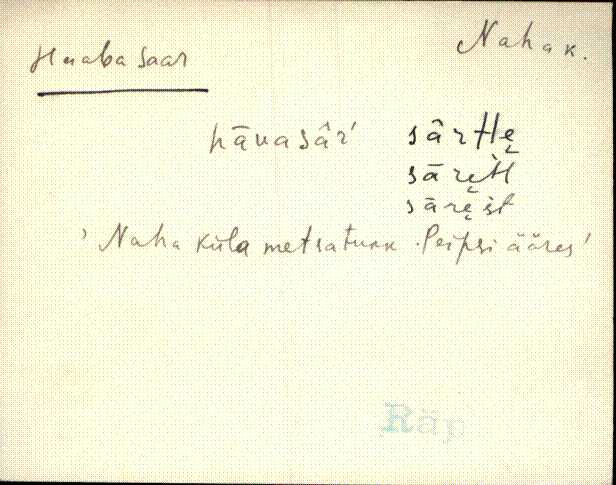 Haabasaar
Naha k.
hāvasâŕ sârHe̮
sāre̮H
sāre̮st
'Naha küla metsatukk Peipsi ääres'
Räp